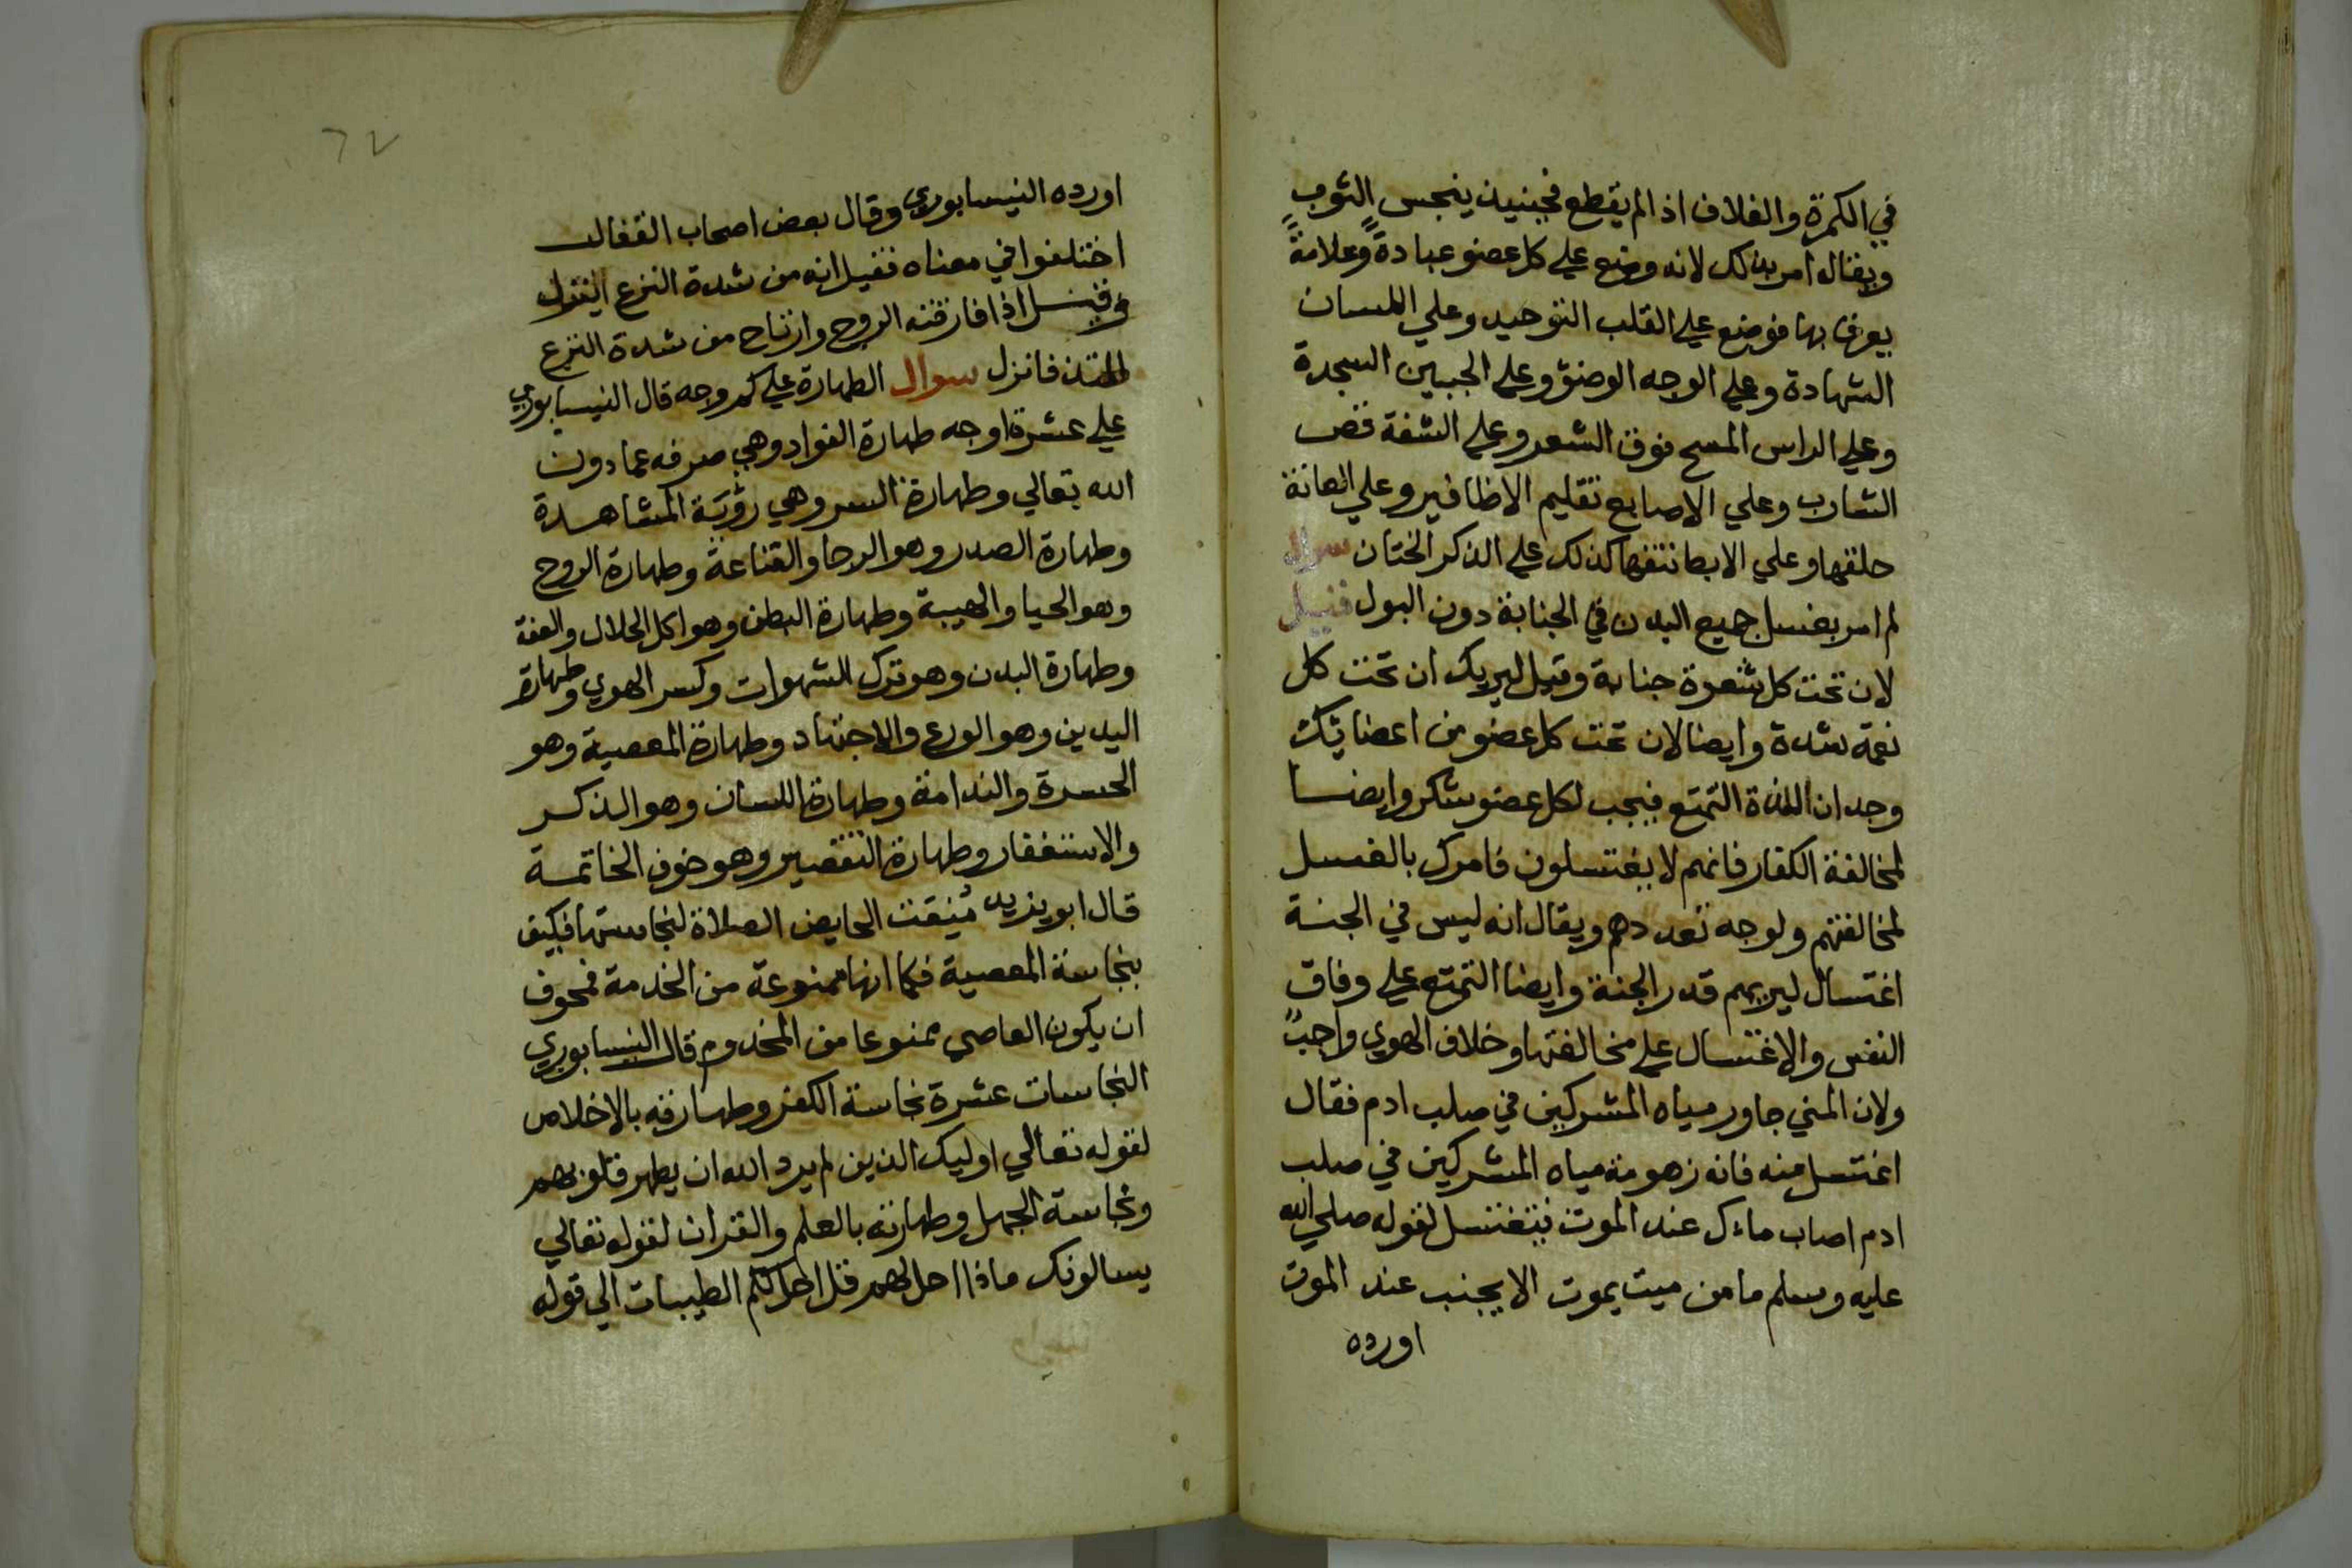 في الكمرة والغلاف اذا لم يقطع فحينيذ ينجس الثوب
ويقال امر بذلك لانه وضع علي كل عضو عبادةً وعلامةً
يعرف بها فوضع علي القلب التوحيد وعلي اللسان
الشهادة وعلي الوجه الوضؤ وعلي الجبين السجدة
وعلي الراس المسح فوق الشعر وعلي الشفة قص
الشارب وعلي الاصابع تقليم الاظافير وعلي العانة
حلقها وعلي الابط نتفها كذلك علي الذكر الختان سوال
لم امر بغسل جميع البدن في الجنابة دون البول فقيل
لان تحت كل شعرة جنابة وقيل ليريك ان تحت كل
نعمة شدة وايضا لان تحت كل عضو من اعضائك
وجدان اللذة التمتع فيجب لكل عضو شكر وايضا
لمخالفة الكفار فانهم لا يغتسلون فامرك بالغسل
لمخالفتهم ولوجه تعددهم ويقال انه ليس في الجنة
اغتسال ليريهم قدر الجنة وايضا التمتع علي وفاق
النفس والاغتسال علي مخالفتها وخلاف الهوي واجبٌ
ولان المني جاور مياه المشركين في صلب ادم فقال
اغتسل منه فانه زهومة مياه المشركين في صلب
ادم اصاب ماءك عند الموت فتغتسل لقوله صلي الله
عليه وسلم ما من ميت يموت الا يجنب عند الموت
اورده
٦٧
اورده النيسابوري وقال بعض اصحاب القفال
اختلفوا في معناه فقيل انه من شدة النزع النزول
وقيل اذا فارقته الروح وارتاح من شدة النزع
فانزل سوال الطهارة علي كم وجه قال النيسابوري
علي عشرة اوجه طهارة الفواد وهي صرفه عما دون
الله تعالي وطهارة السر وهي رؤية المشاهدة
وطهارة الصدر وهو الرجا والقناعة وطهارة الروح
وهو الحيا والهيبة وطهارة البطن وهو اكل الحلال والعفة
وطهارة البدن وهو ترك الشهوات وكسر الهوي وطهارة
اليدين وهو الورع والاجتهاد وطهارة المعصية وهو
الحسرة والندامة وطهارة اللسان وهو الذكر
والاستغفار وطهارة التقصير وهو خوف الخاتمة
قال ابو يزيد الحايض الصلاة لنجاستها فكيف
بنجاسة المعصية فكما انها ممنوعة من الخدمة فخوف
ان يكون العاصي ممنوعا من المخدوم قال النيسابوري
النجاسات عشرة نجاسة الكفر وطهارته بالاخلاص
لقوله تعالي اوليك الذين لم يرد الله ان يطهر قلوبهم
ونجاسة الجهل وطهارته بالعلم والقران لقوله تعالي
يسالونك ماذا احل لهم قل احل لكم الطيبات الي قوله